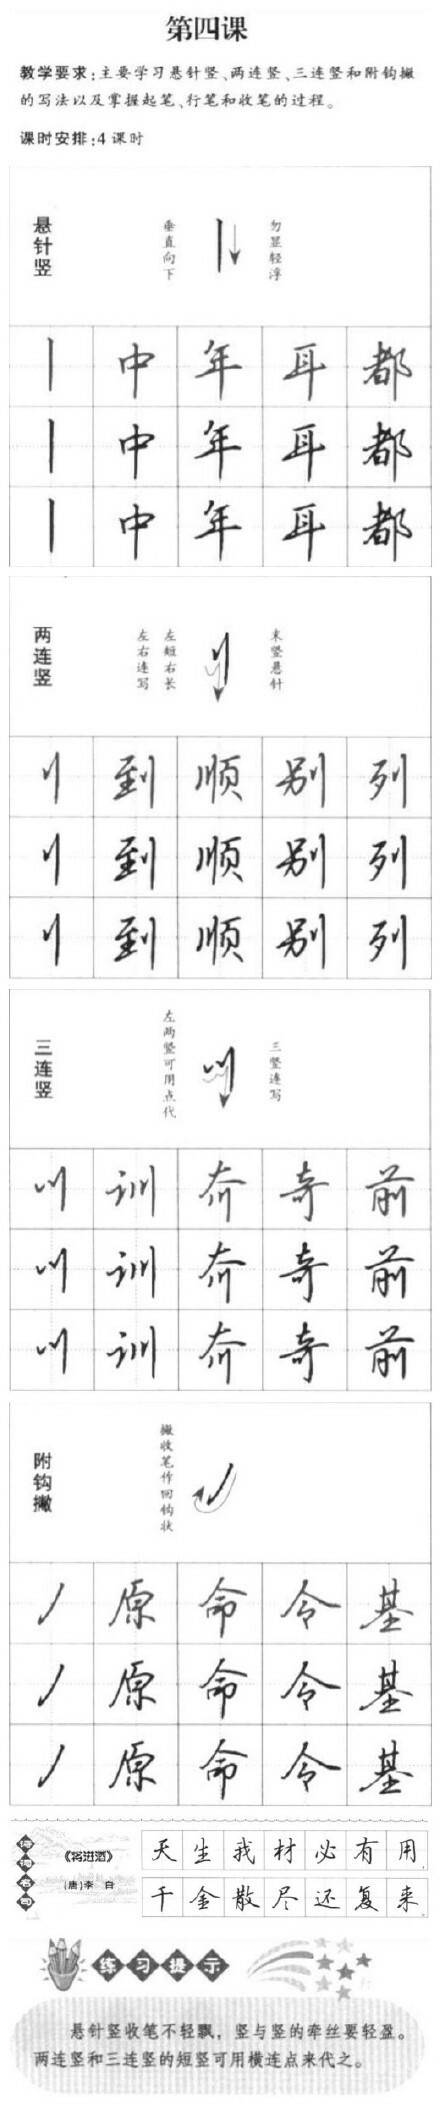 第四课
教学要求:主要学习悬针竖、两连竖、三连竖和附钩撇
的写法以及掌握起笔、行笔和收笔的过程。
课时安排:4课时
悬针竖
垂直向下
勿显轻浮
丨 中 年 耳 都
丨 中 年 耳 都
丨 中 年 耳 都
两连竖
左右连写
左短右长
末竖悬针
刂 到 顺 别 列
刂 到 顺 别 列
刂 到 顺 别 列
三连竖
左两竖可用点代
三竖连写
川 训 奔 奇 前
川 训 奔 奇 前
川 训 奔 奇 前
附钩撇
撇收笔作回钩状
丿 原 命 令 基
丿 原 命 令 基
丿 原 命 令 基
诗词名句
《将进酒》
(唐)李 白
天生我材必有用,
千金散尽还复来。
练习提示
悬针竖收笔不轻飘,竖与竖的牵丝要轻盈。
两连竖和三连竖的短竖可用横连点来代之。